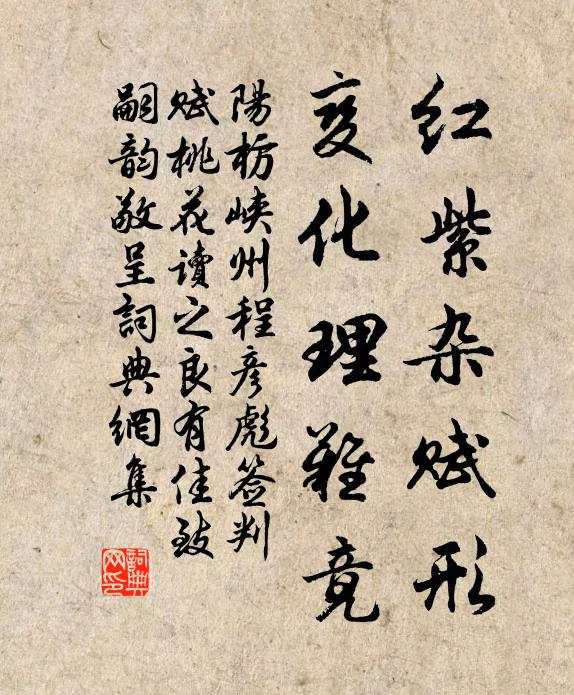 红紫杂赋形
变化理難竟
陽枋峽州程彦彪签判
赋桃花讀之良有佳致
嗣韵敬呈詞典網集
詞典网印